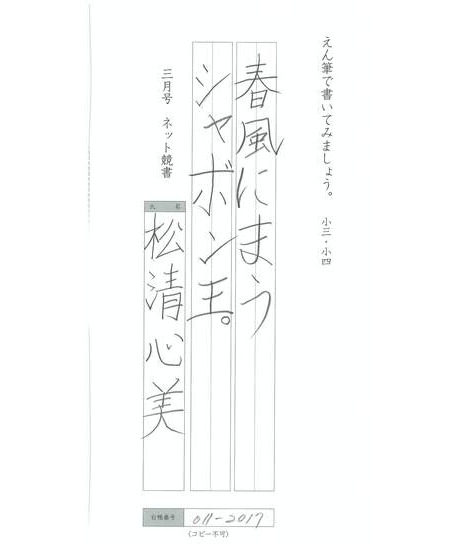 えん筆で書いてみましょう。 小三・小四
春風にまう
シャボン玉。
三月号 ネット競書
氏名
松清心美
台帳番号 011-2017
(コピー不可)